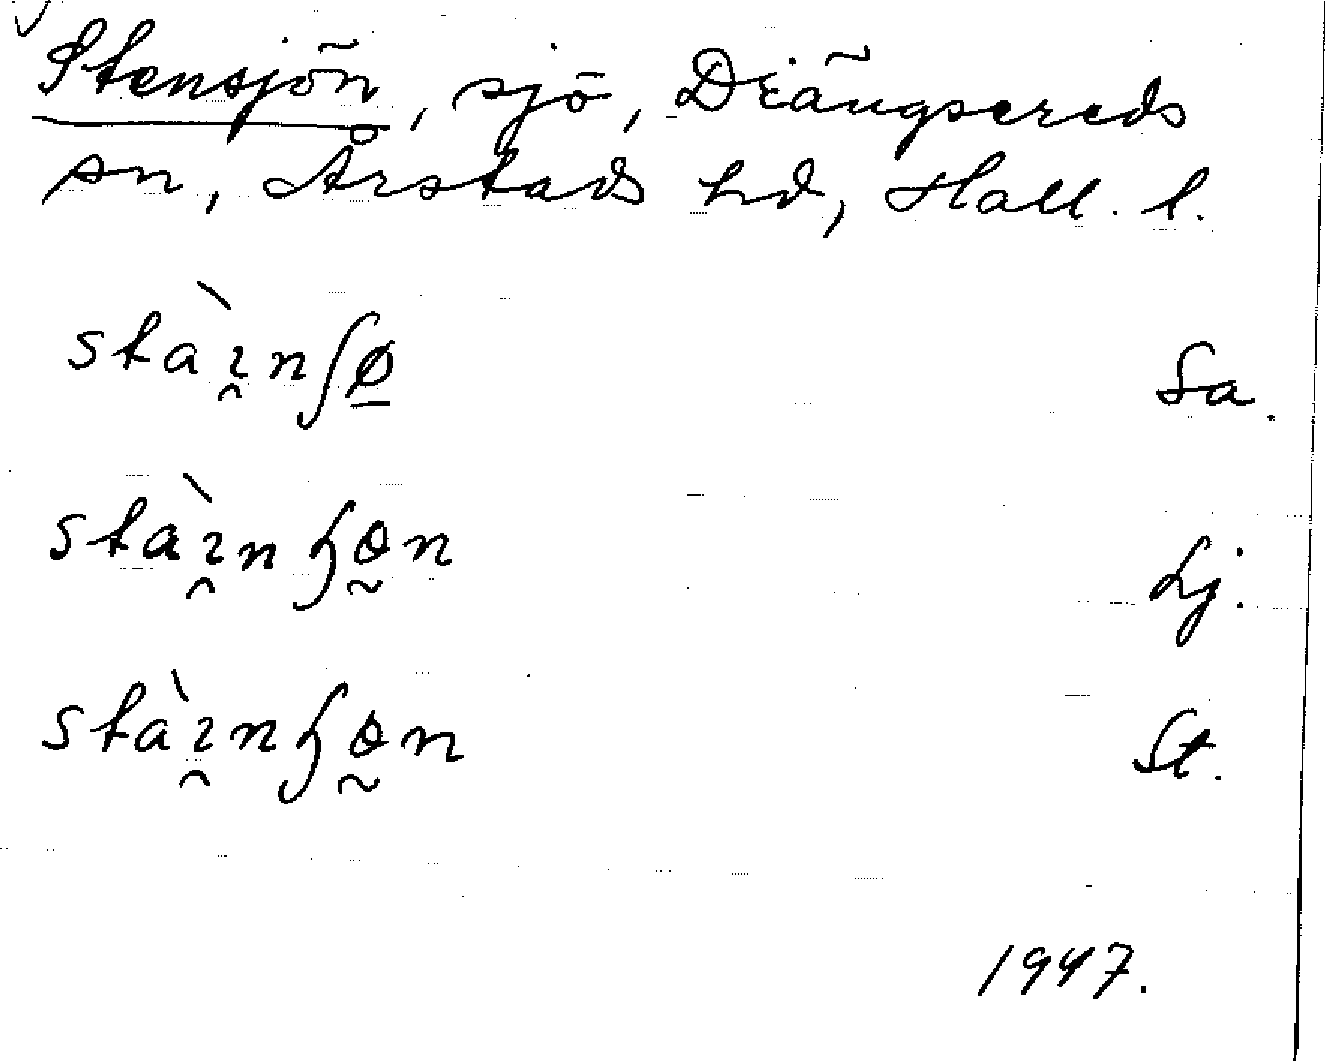 Stensjön, sjö, Drängsereds
sn, Årstads hd, Hall. l.
stàı̯nʃø̠ Sa.
stàı̯nɧɵ̰n Lj.
stàı̯nɧɵ̰n St.
1947.